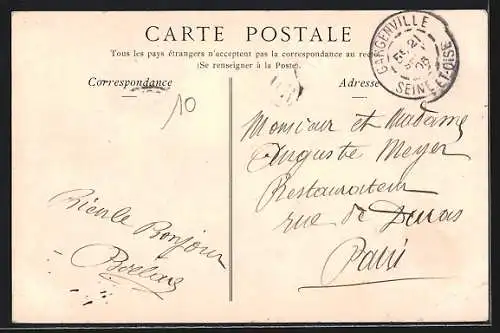 CARTE POSTALE
Tous les pays étrangers n'acceptent pas la correspondance au
(Se renseigner à la Poste).
Correspondance
Adresse
GARGENVILLE
21
05
SEINE-ET-OISE
10
Monsieur et Madame
Auguste Meyer
Restaurateur
rue de
Paris
Bonjour